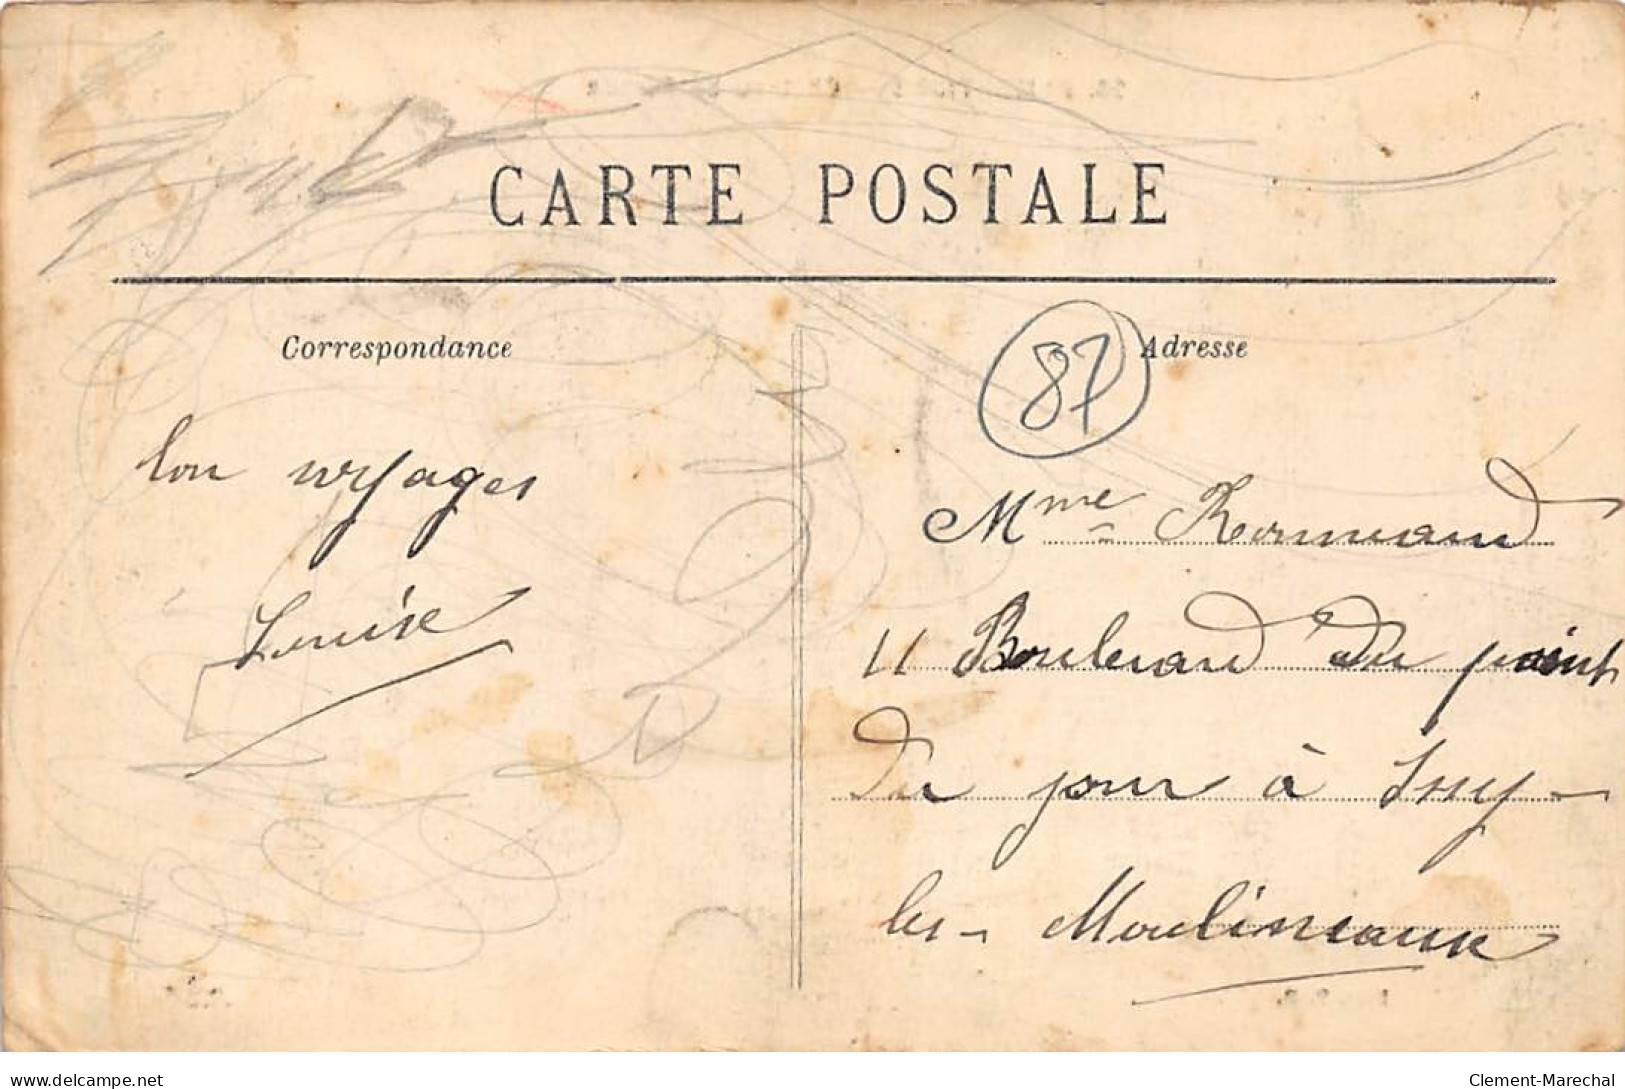 CARTE POSTALE
Correspondance
Adresse
87
bon voyages
Louise
Mme Normand
11 Boulevard du point
du jour à Issy-
les-Moulineaux
delcampe.net
Clement-Marechal